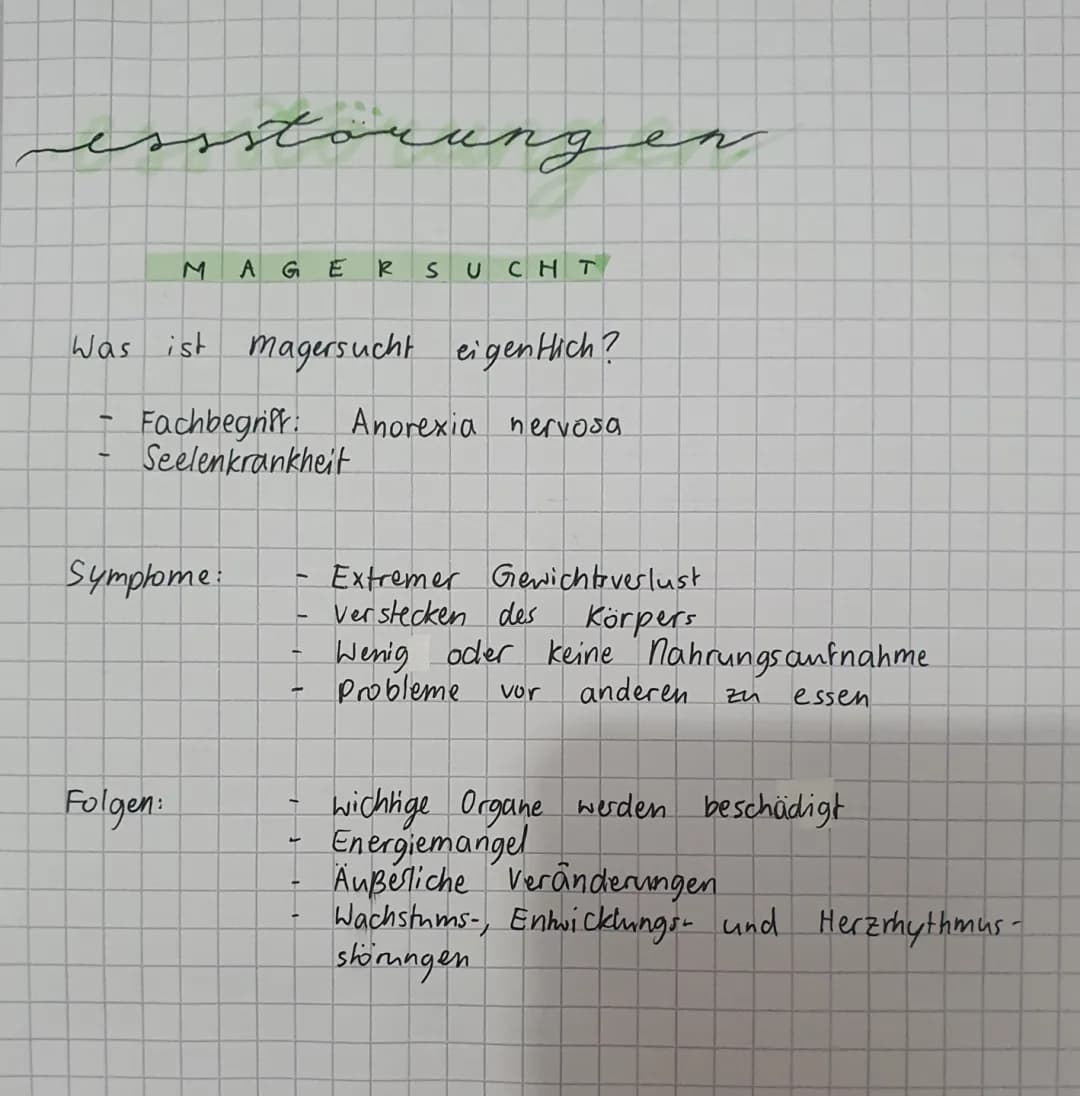 essstörungen
MAGERSUCHT
Was ist magersucht eigentlich?
- Fachbegriff: Anorexia nervosa
- Seelenkrankheit
Symptome: - Extremer Gewichtsverlust
- Verstecken des Körpers
- Wenig oder keine Nahrungsaufnahme
- Probleme vor anderen zu essen
Folgen: - wichtige Organe werden beschädigt
- Energiemangel
- Äußerliche Veränderungen
- Wachstums-, Entwicklungs- und Herzrhythmus-
störungen